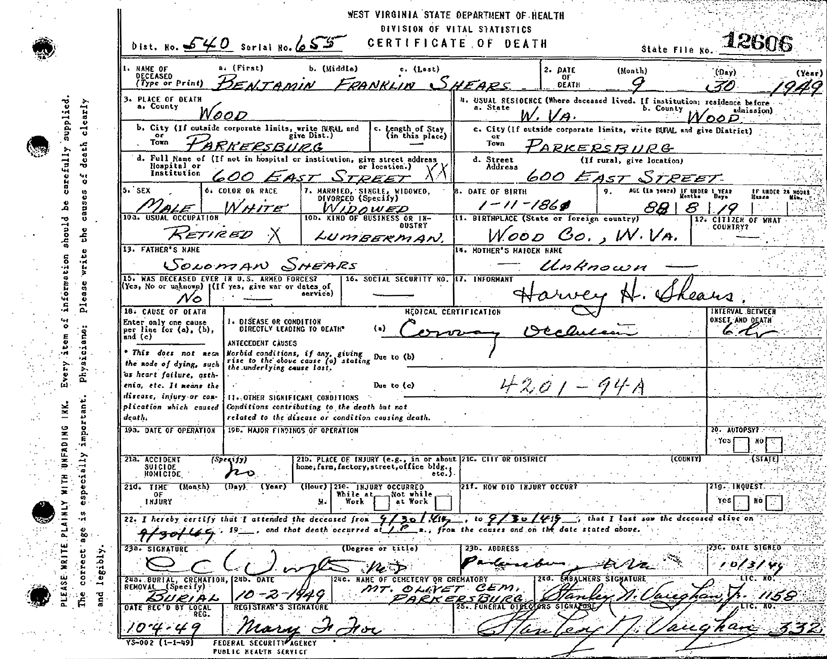 WEST VIRGINIA STATE DEPARTMENT OF HEALTH
DIVISION OF VITAL STATISTICS
CERTIFICATE OF DEATH
Dist. No. 540 Serial No. 655
State File No. 12606
1. NAME OF DECEASED (Type or Print) a. (First) b. (Middle) c. (Last)
BENJAMIN FRANKLIN SHEARS
2. DATE OF DEATH (Month) (Day) (Year)
9 30 1949
3. PLACE OF DEATH
a. County WOOD
4. USUAL RESIDENCE (Where deceased lived. If institution: residence before admission)
a. State W. VA. b. County WOOD
b. City (If outside corporate limits, write RURAL and give Dist.) or Town
PARKERSBURG
c. Length of Stay (in this place)
c. City (If outside corporate limits, write RURAL and give District) or Town
PARKERSBURG
d. Full Name of (If not in hospital or institution, give street address or location.) Hospital or Institution
600 EAST STREET XX
d. Street Address (If rural, give location)
600 EAST STREET
5. SEX MALE
6. COLOR OR RACE WHITE
7. MARRIED, SINGLE, WIDOWED, DIVORCED (Specify) WIDOWED
8. DATE OF BIRTH
9. AGE (In years) IF UNDER 1 YEAR Months Days IF UNDER 24 HOURS Hours Min.
88 8 19
10a. USUAL OCCUPATION RETIRED X
10b. KIND OF BUSINESS OR INDUSTRY LUMBERMAN.
11. BIRTHPLACE (State or foreign country) WOOD CO., W. VA.
12. CITIZEN OF WHAT COUNTRY?
13. FATHER'S NAME
SOLOMAN SHEARS
14. MOTHER'S MAIDEN NAME
— Unknown —
15. WAS DECEASED EVER IN U.S. ARMED FORCES? (Yes, No or unknown) (If yes, give war or dates of service)
NO
16. SOCIAL SECURITY NO.
17. INFORMANT
Harvey H. Shears.
18. CAUSE OF DEATH
Enter only one cause per line for (a), (b), and (c)
MEDICAL CERTIFICATION
INTERVAL BETWEEN ONSET AND DEATH
I. DISEASE OR CONDITION DIRECTLY LEADING TO DEATH* (a)
Occlusion
ANTECEDENT CAUSES
* This does not mean the mode of dying, such as heart failure, asthenia, etc. It means the disease, injury or complication which caused death.
Morbid conditions, if any, giving rise to the above cause (a) stating the underlying cause last.
Due to (b)
Due to (c)
4201-94A
II. OTHER SIGNIFICANT CONDITIONS
Conditions contributing to the death but not related to the disease or condition causing death.
19a. DATE OF OPERATION
19b. MAJOR FINDINGS OF OPERATION
20. AUTOPSY?
Yes NO
21a. ACCIDENT SUICIDE HOMICIDE (Specify)
no
21b. PLACE OF INJURY (e.g., in or about home, farm, factory, street, office bldg. etc.)
21c. CITY OR DISTRICT (COUNTY) (STATE)
21d. TIME OF INJURY (Month) (Day) (Year) (Hour) M.
21e. INJURY OCCURRED While at Work Not while at Work
21f. HOW DID INJURY OCCUR?
21g. INQUEST
Yes NO
22. I hereby certify that I attended the deceased from 9/30/49, to 9/30/49, that I last saw the deceased alive on
9/30/49, 19 , and that death occurred at 1 P m., from the causes and on the date stated above.
23a. SIGNATURE (Degree or title)
MD
23b. ADDRESS
Parkersburg W Va
23c. DATE SIGNED
10/3/49
24a. BURIAL, CREMATION, REMOVAL (Specify)
BURIAL
24b. DATE
10-2-1949
24c. NAME OF CEMETERY OR CREMATORY
MT. OLIVET CEM. PARKERSBURG
24d. EMBALMERS SIGNATURE LIC. NO.
Stanley N. Vaughan Jr. 1158
DATE REC'D BY LOCAL REG.
10-4-49
REGISTRAR'S SIGNATURE
25. FUNERAL DIRECTORS SIGNATURE LIC. NO.
Stanley N. Vaughan 332
VS-002 (1-1-49)
FEDERAL SECURITY AGENCY
PUBLIC HEALTH SERVICE
PLEASE WRITE PLAINLY WITH UNFADING INK. Every item of information should be carefully supplied.
The correct age is especially important. Physicians: Please write the causes of death clearly
and legibly.